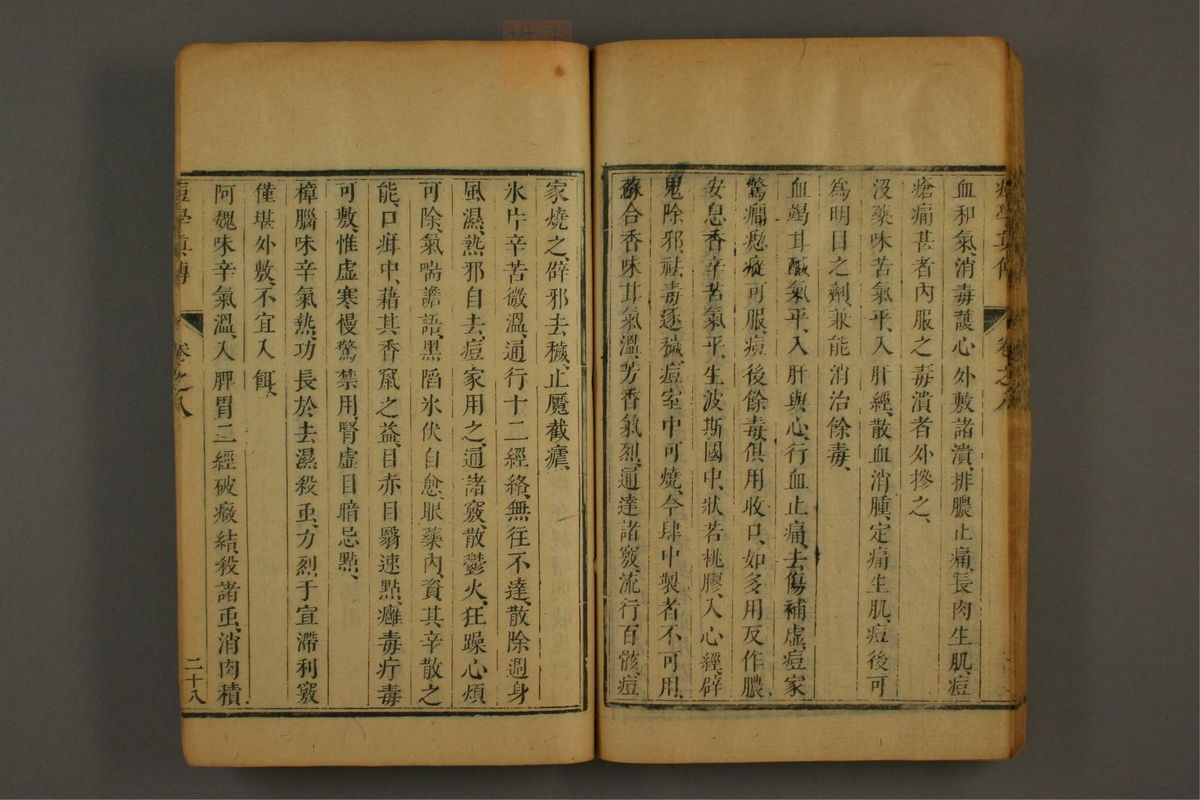 痘學真傳 卷之八
血和氣、消毒護心、外敷諸潰、排膿止痛、長肉生肌、痘
瘡痛甚者內服之、毒潰者外摻之、
沒藥味苦氣平、入肝經、散血消腫、定痛生肌、痘後可
為明目之劑、兼能消治餘毒、
血竭甘鹹氣平、入肝與心、行血止痛、去傷補虛、痘家
驚癎瘛瘲可服、痘後餘毒、俱用收口、如多用反作膿、
安息香辛苦氣平、生波斯國中、狀若桃膠、入心經、辟
鬼除邪、祛毒逐穢、痘室中可燒、今肆中製者不可用、
蘇合香味甘氣溫、芳香氣烈、通達諸竅、流行百骸、痘
家燒之、僻邪去穢、止魘截瘧、
氷片辛苦微溫、通行十二經絡、無往不達、散除週身
風濕、熱邪自去、痘家用之、通諸竅、散鬱火、狂躁心煩
可除、氣喘譫語、黑陷氷伏自愈、服藥內、資其辛散之
能、口疳中、藉其香竄之益、目赤目翳速點、癰毒疔毒
可敷、惟虛寒慢驚禁用、腎虛目暗忌點、
樟腦味辛氣熱、功長於去濕殺虫、方烈于宣滯利竅
僅堪外敷、不宜入餌、
阿魏味辛氣溫、入脾胃二經、破癥結、殺諸虫、消肉積
痘學真傳 卷之八 二十八